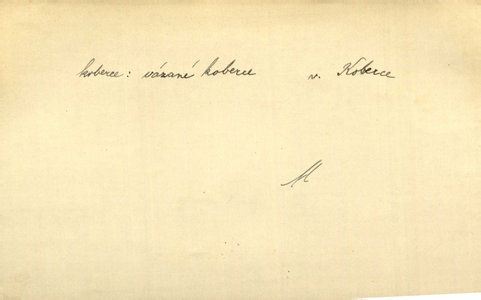 koberce: vázané koberce v. Koberce
M